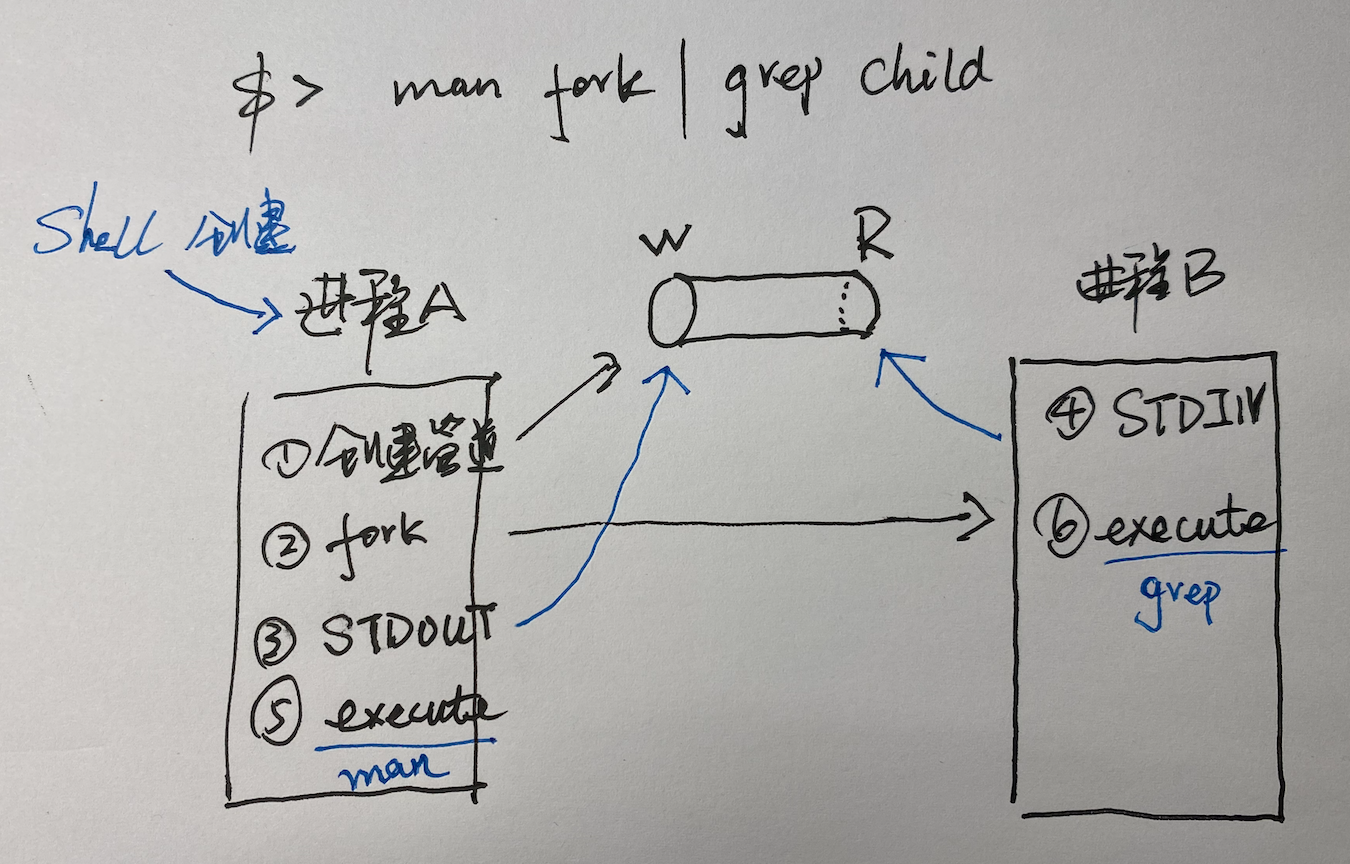 $> man fork | grep child
Shell 创建
进程A
W
R
进程B
① 创建管道
② fork
③ STDOUT
⑤ execute
man
④ STDIN
⑥ execute
grep